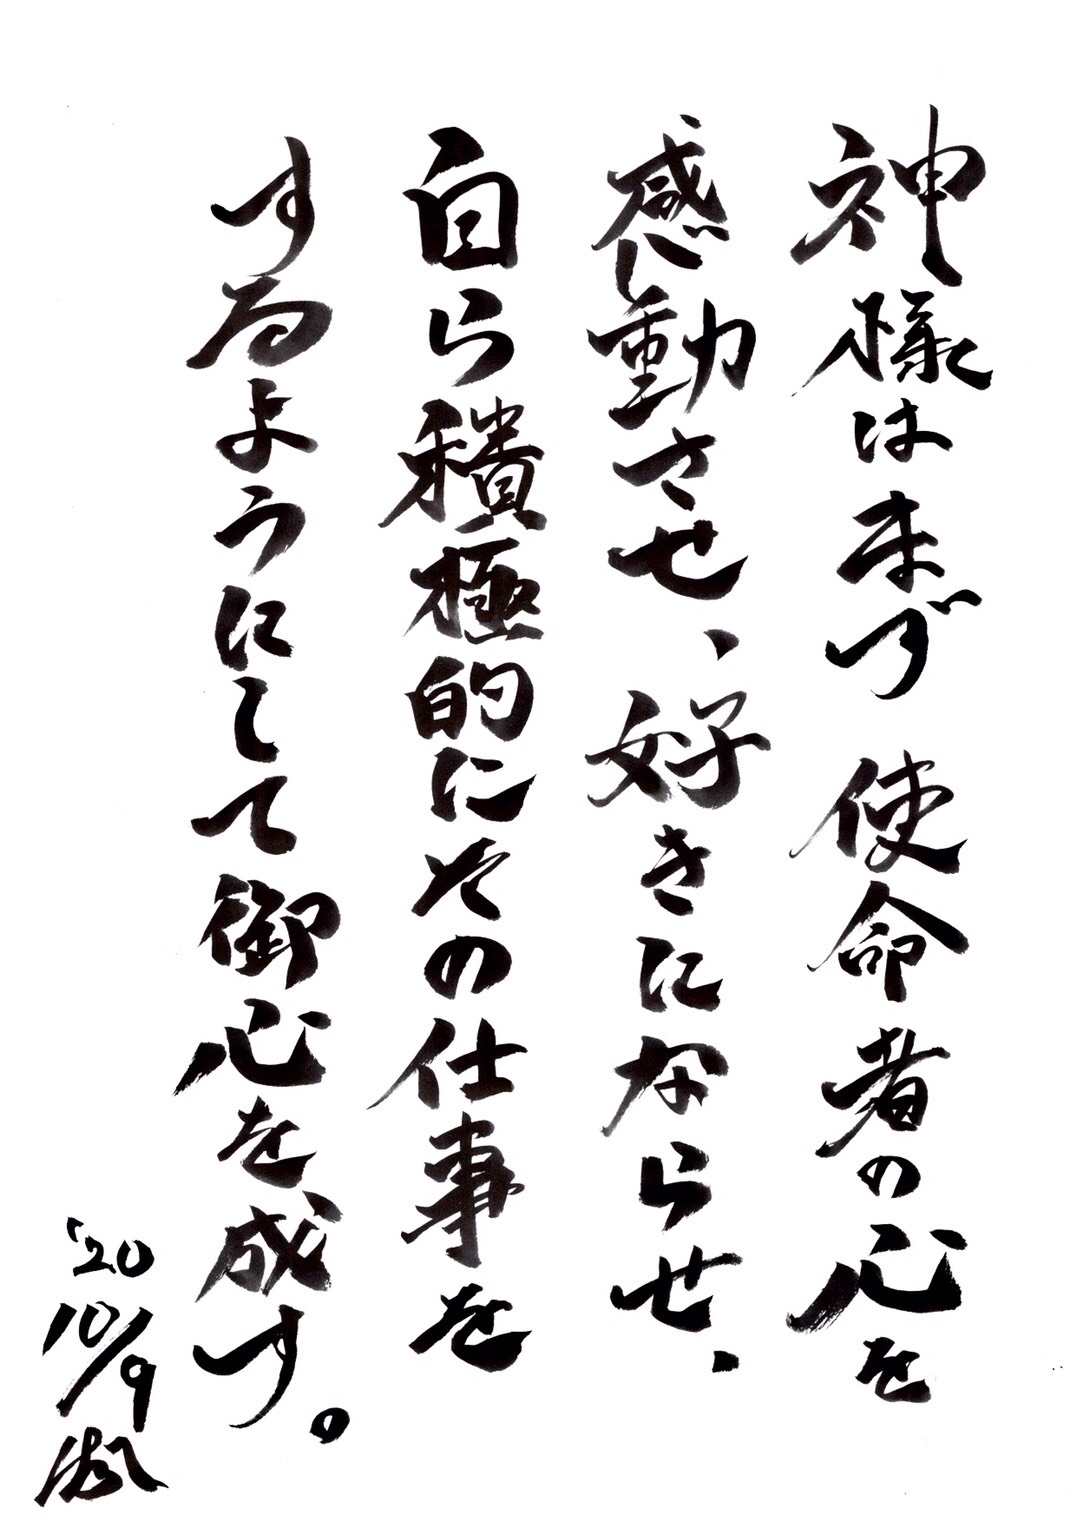 神様はまづ 使命者の心を
感動させ、好きにならせ、
自ら積極的にその仕事を
するようにして御心を成す。
'20
10/9